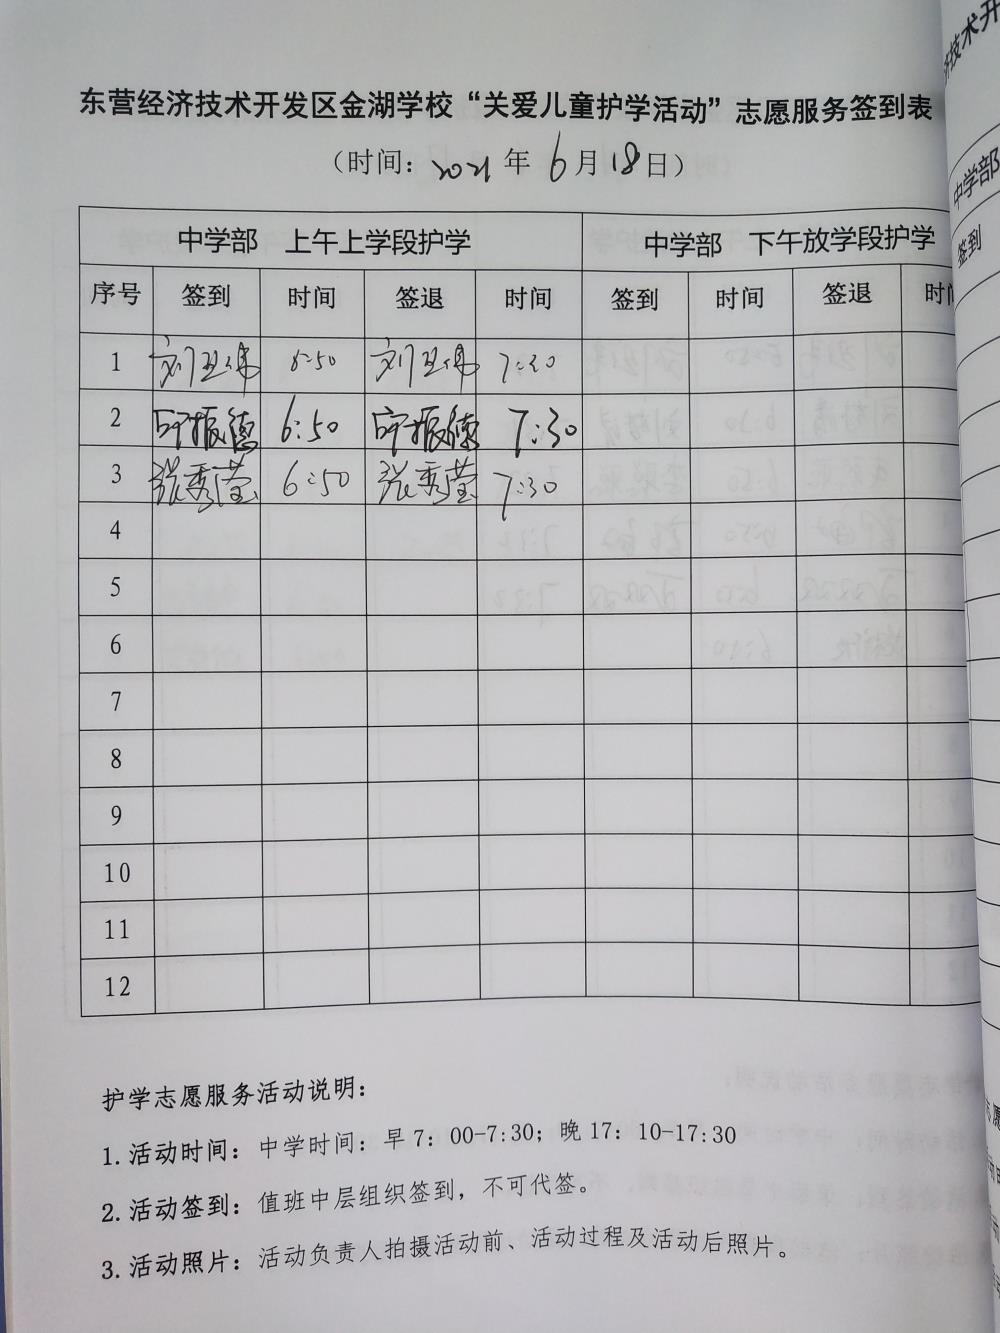 东营经济技术开发区金湖学校“关爱儿童护学活动”志愿服务签到表
（时间：2021年6月18日）
中学部 上午上学段护学 中学部 下午放学段护学
序号 签到 时间 签退 时间 签到 时间 签退
1 6:50 7:30
2 振德 6:50 振德 7:30
3 张秀莹 6:50 张秀莹 7:30
4
5
6
7
8
9
10
11
12
护学志愿服务活动说明：
1.活动时间：中学时间：早7：00-7:30；晚17：10-17:30
2.活动签到：值班中层组织签到，不可代签。
3.活动照片：活动负责人拍摄活动前、活动过程及活动后照片。
中学部
签到